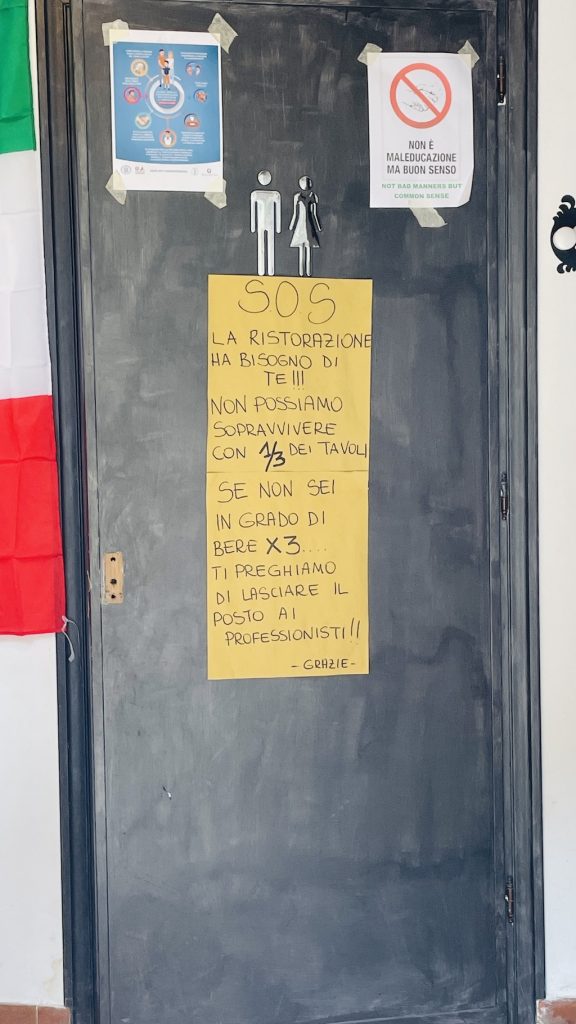 NON È
MALEDUCAZIONE
MA BUON SENSO
NOT BAD MANNERS BUT
COMMON SENSE
SOS
LA RISTORAZIONE
HA BISOGNO DI
TE!!!
NON POSSIAMO
SOPRAVVIVERE
CON 1/3 DEI TAVOLI
SE NON SEI
IN GRADO DI
BERE X3....
TI PREGHIAMO
DI LASCIARE IL
POSTO AI
PROFESSIONISTI!!
-GRAZIE-